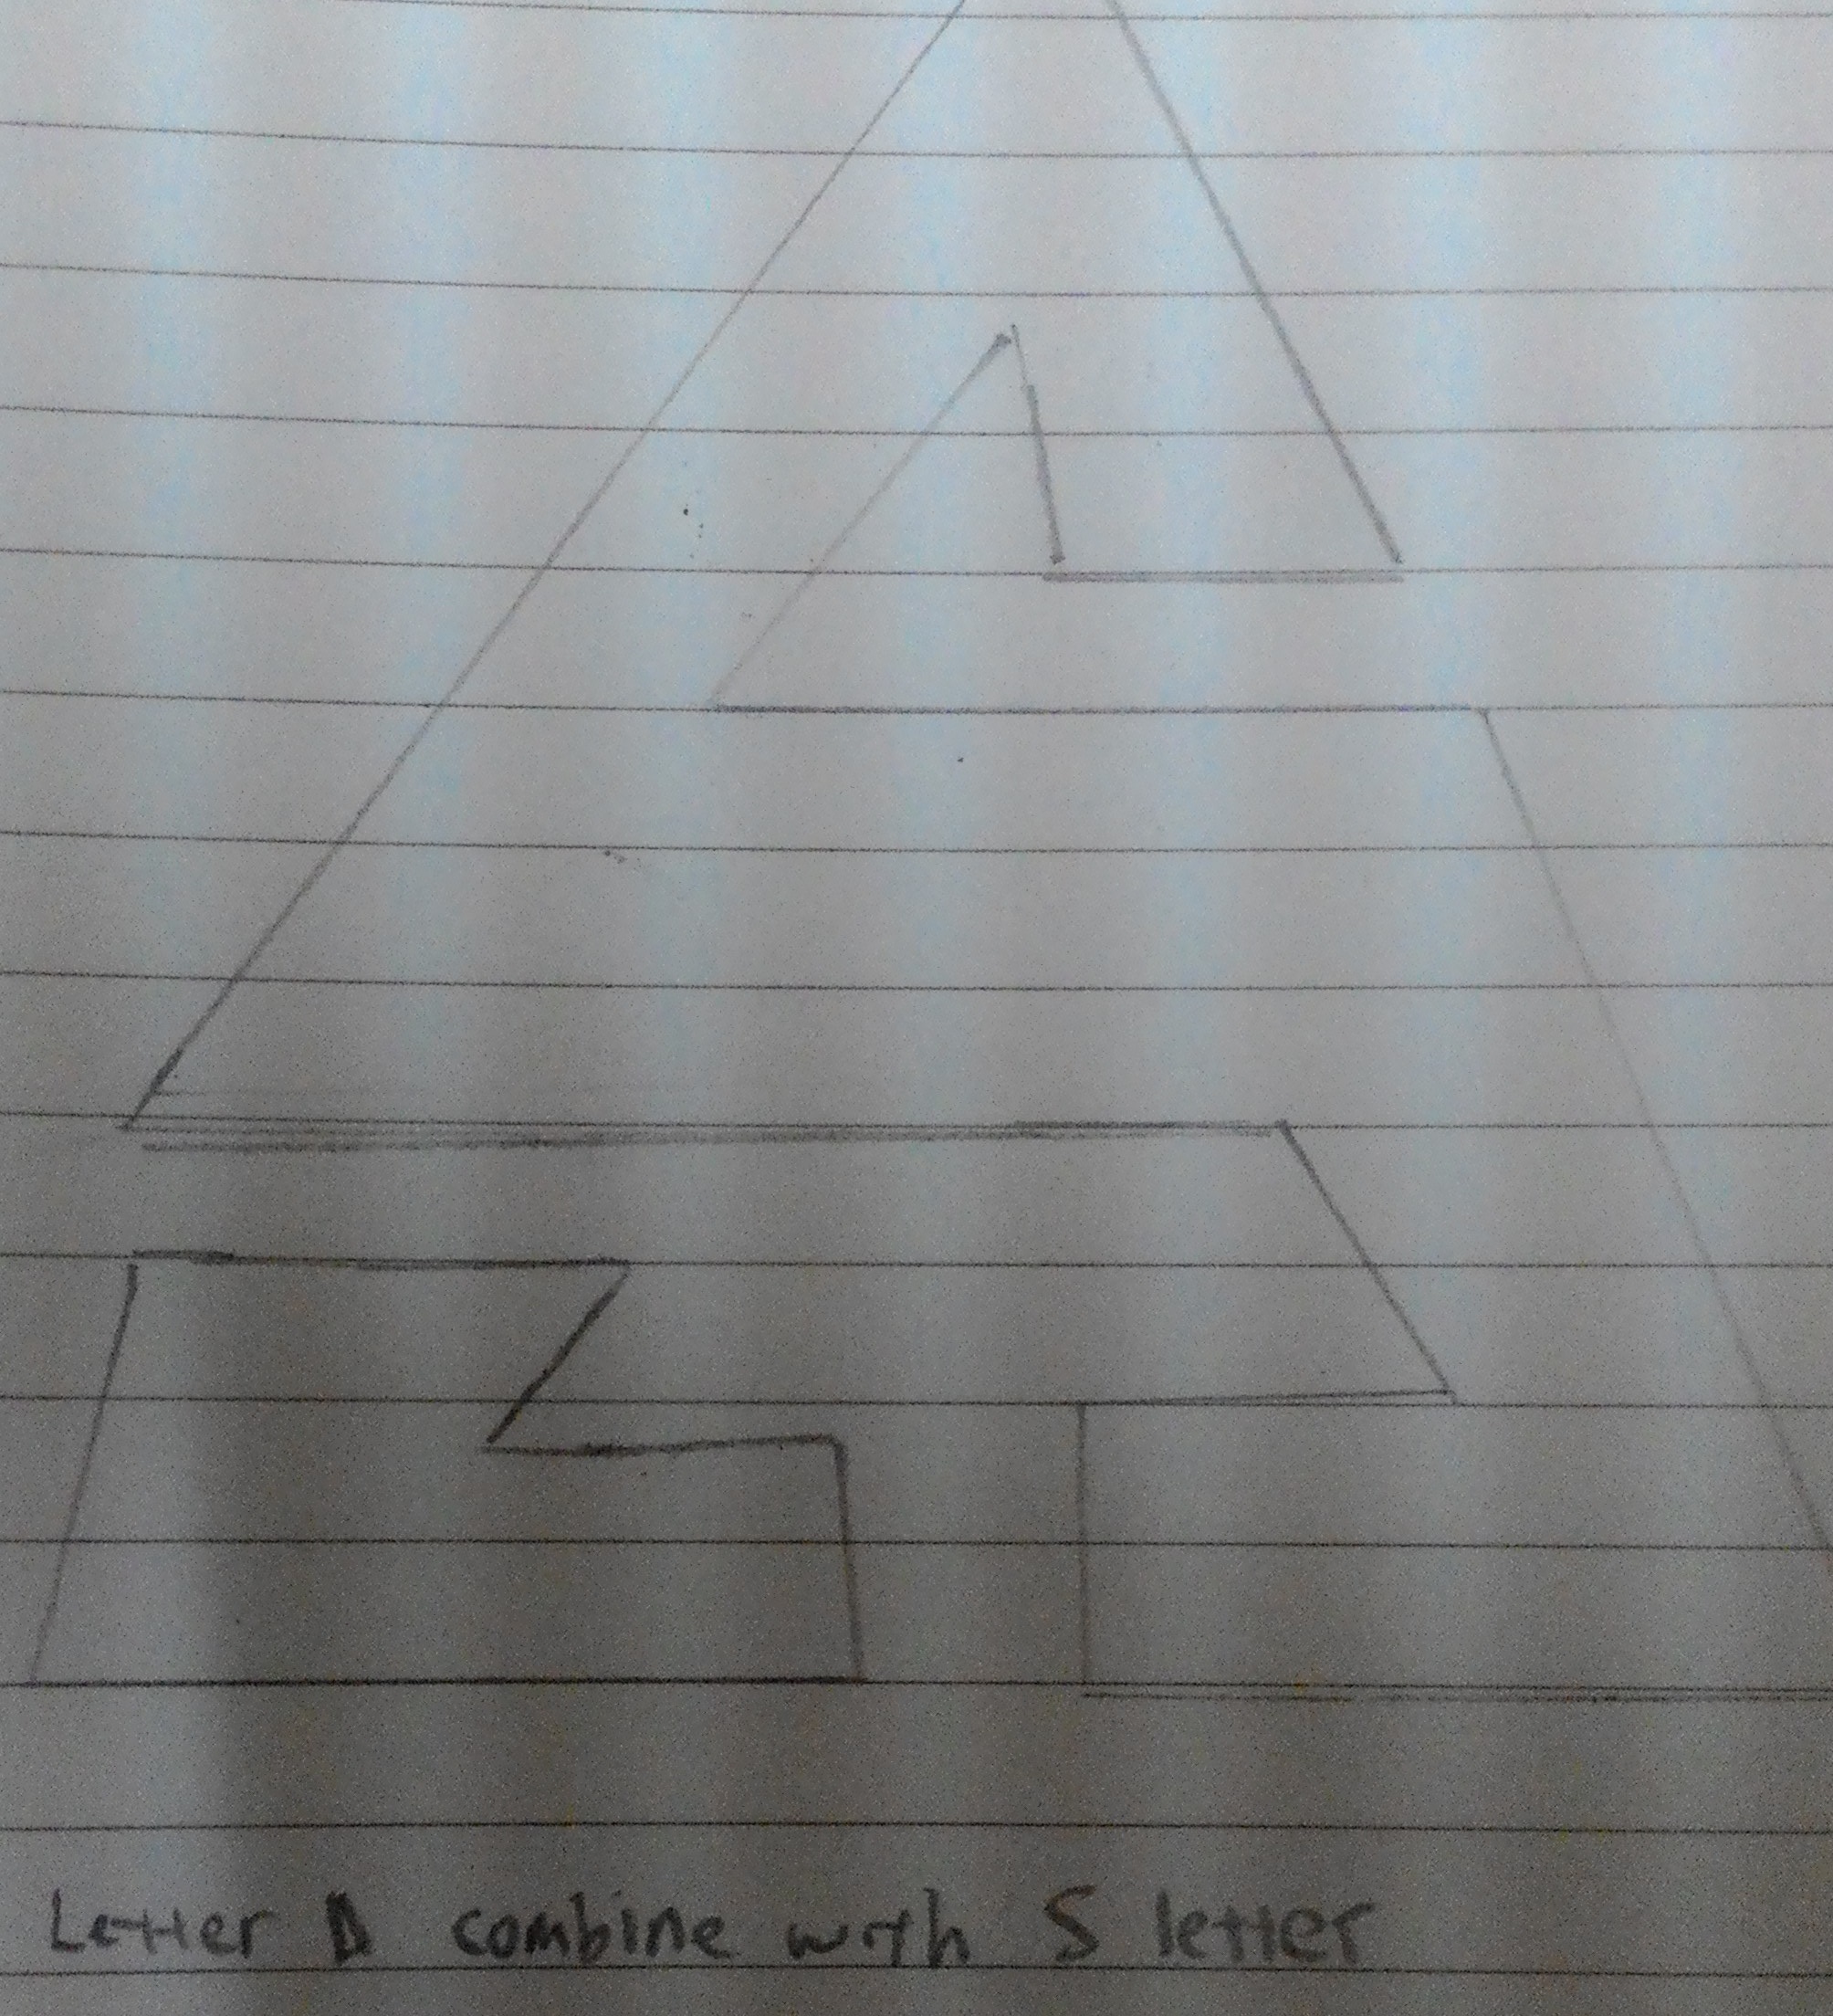 Letter combine with S letter